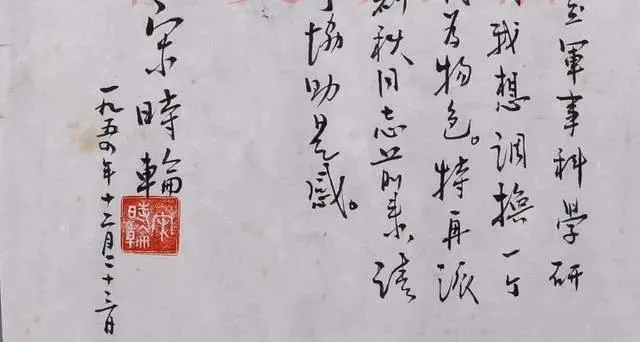 軍事科學研
我想調換一个
為物色。特再派
同志前来請
協助是感。
宋時輪
一九五四年十二月二十三日
宋時輪